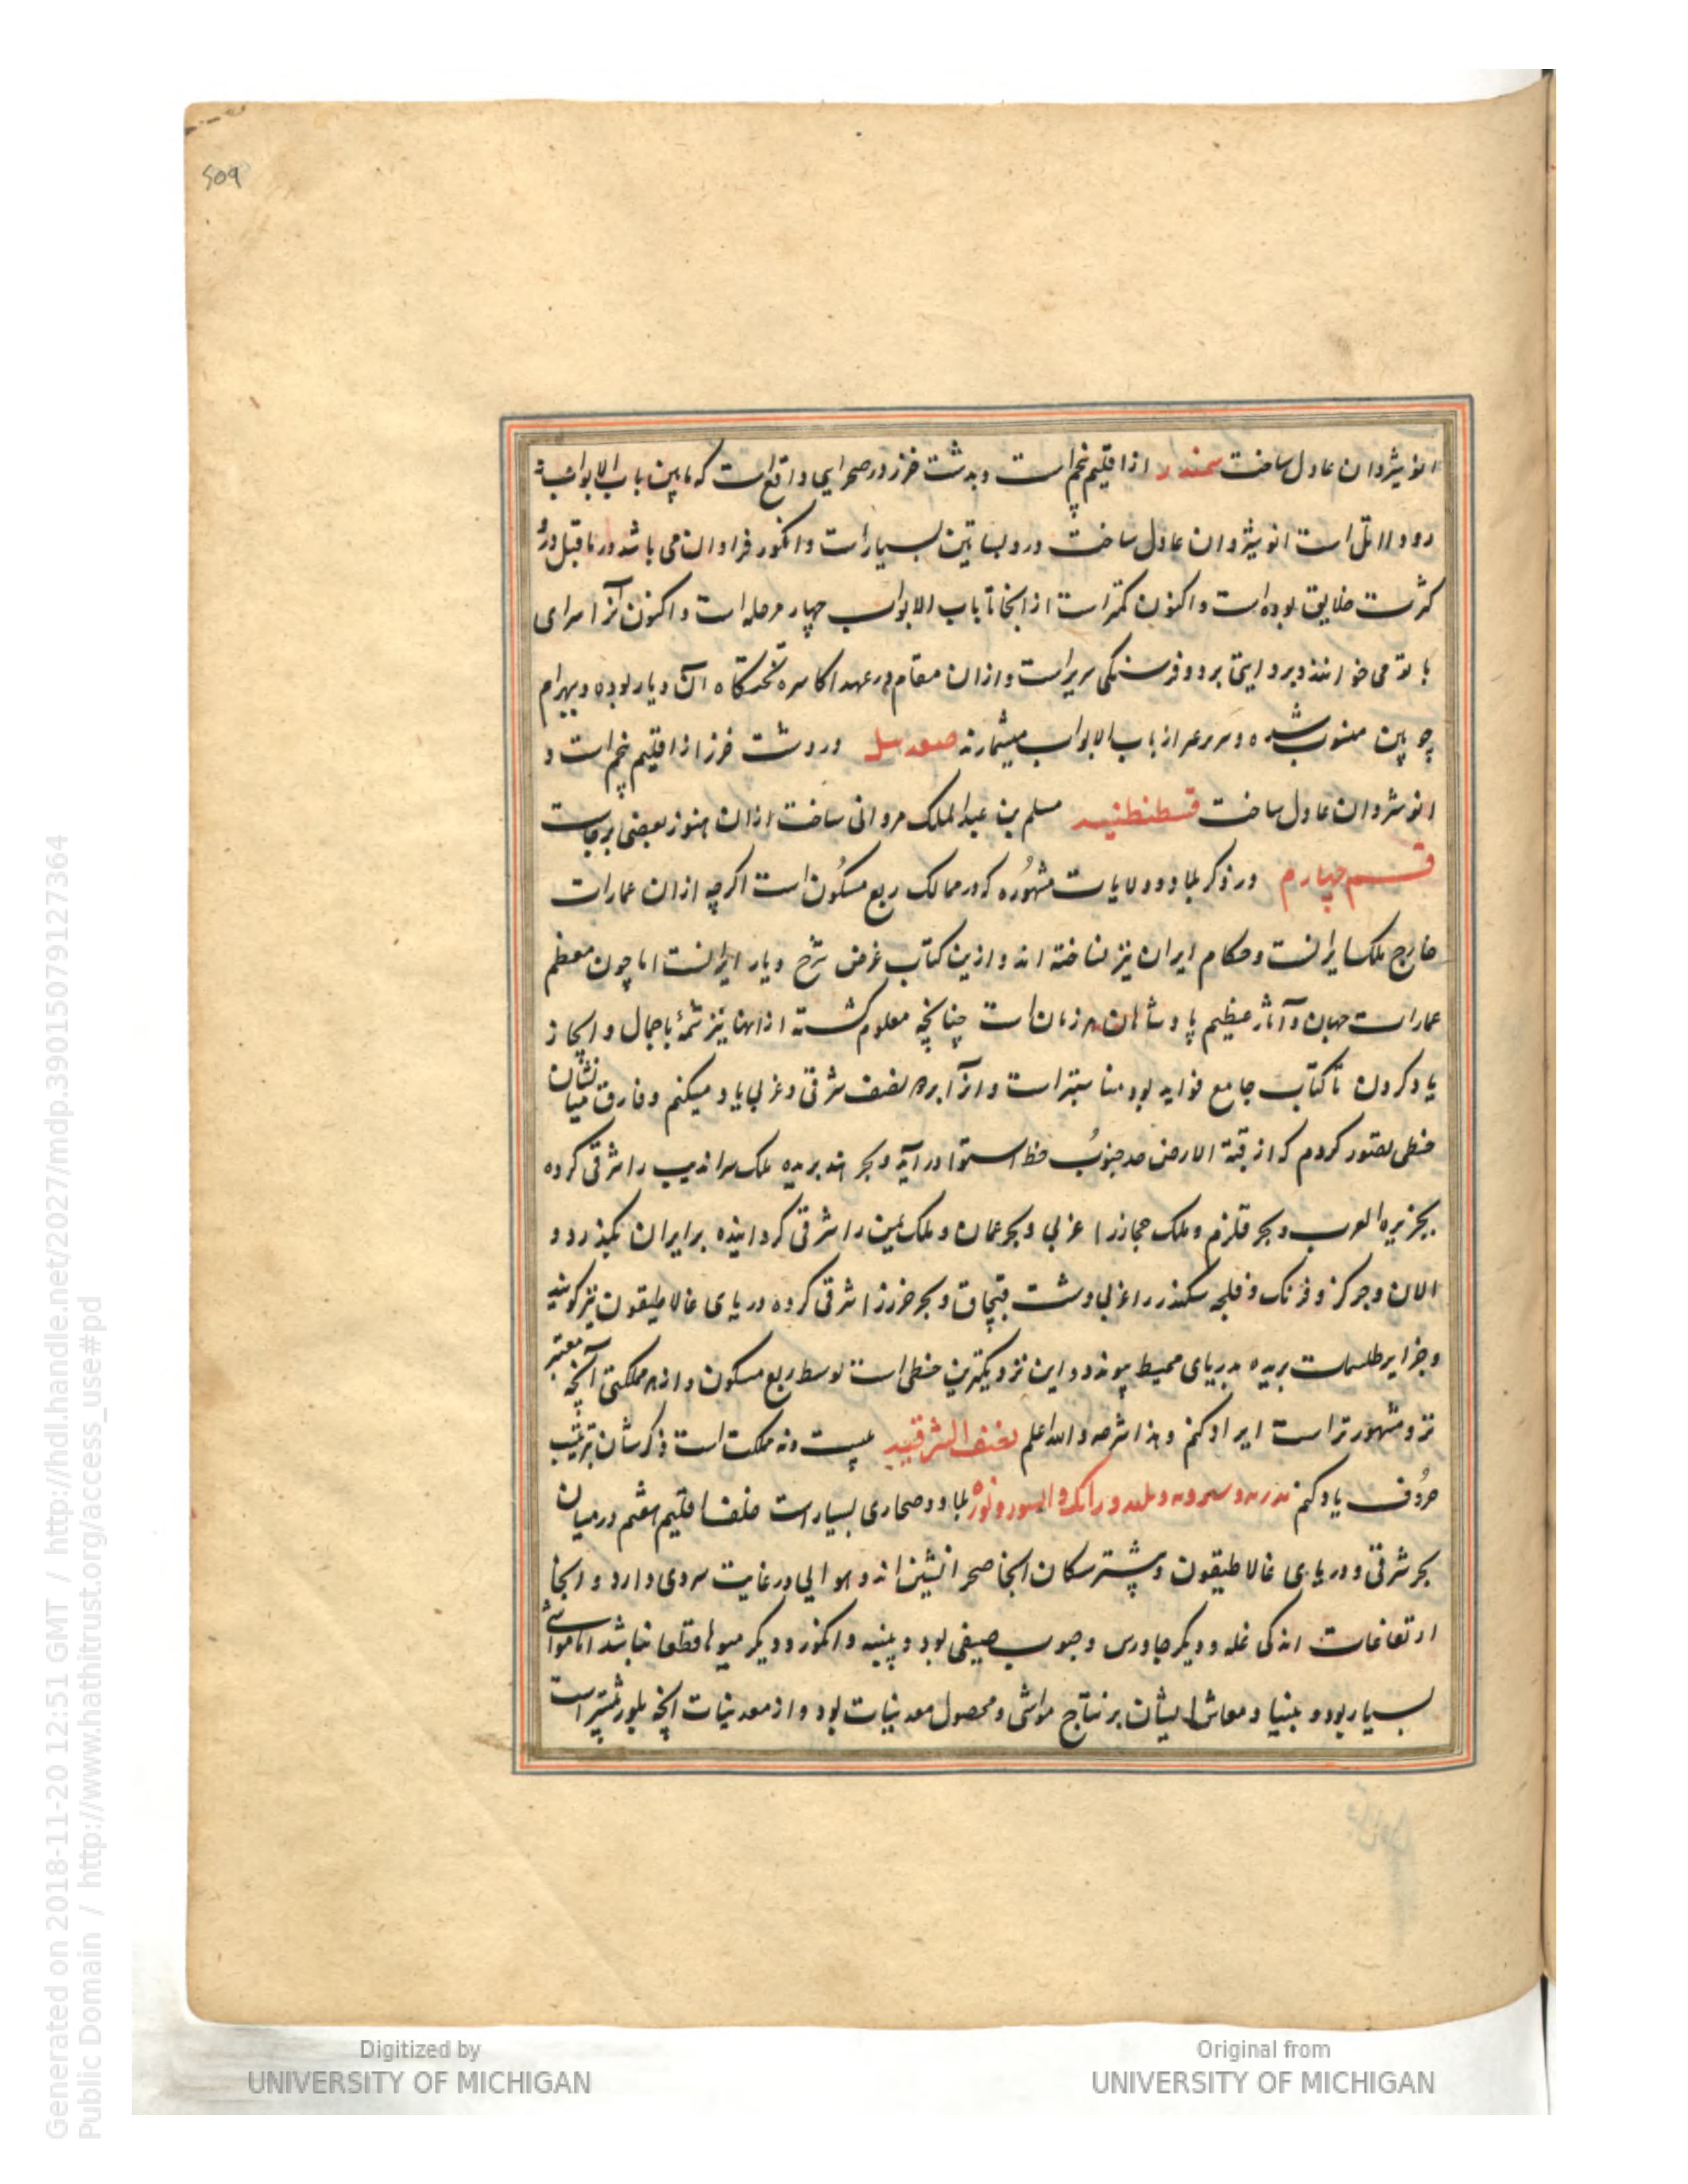 509
انوشیروان عادل ساخت سمندر از اقلیم پنجم است و بدشت خزر در صحرایی واقع است که مابین باب الابواب
رود و اتل است انوشیروان عادل ساخت و در و بساتین بسیار است و انکور فراوان می باشد و در ماقبل درو
کثرت خلایق بوده است و اکنون کمتر است از آنجا تا باب الابواب چهار مرحله است و اکنون آنرا سرای
باتو می خوانند و برو اینجا بر دو فرسنکی سریر است و از آن مقام در عهد اکاسره تختکاه آن دیار بوده و ببهرام
چوبین منسوب شده از باب الابواب میشمارند در دشت خزر از اقلیم پنجم است و
انوشروان عادل ساخت قسطنطنیه مسلم بن عبدالملک مروانی ساخت از آن هنوز بعضی برجاست
قسم چهارم در ذکر بلاد و ولایات مشهوره که در ممالک ربع مسکون است اکرچه از آن عمارات
خارج ملک ایرانست و حکام ایران نیز نساخته اند و ازین کتاب غرض شرح دیار ایرانست اما چون معظم
عمارات جهان و آثار عظیم پادشاهان هر زمان است چنانچه معلوم کشته از آنها نیز شمهٔ باجمال و ایجاز
یاد کردن تا کتاب جامع فواید بود مناسبتر است و آنرا بر دو نصف شرقی و غربی یاد میکنم و فارق میان شان
خطی تصور کردم که از قبة الارض حد جنوب خط استوا در آید و بحر هند بریده ملک سراندیب را شرقی کرده
بجزیره العرب و بحر قلزم و ملک حجاز را غربی و بحر عمان و ملک یمن را شرقی کردانیده بر ایران بکذرد و
الان و چرکز و فرنک و قلجه سکندر را غربی و دشت قپچاق و بحر خزر را شرقی کرده دریای غالاطیقون نیز کویند
و جزایر طلسمات بریده بدریای محیط پیوندد و این نزدیکترین خطی است بوسط ربع مسکون و از هر مملکتی آنچه معتبر
تر و مشهورتر است ایراد کنم و هذا شرحه والله اعلم نصف الشرقیه بیست و نه مملکت است ذکر شان بترتیب
حروف یاد کنم بلاد و صحاری بسیار است خلف اقلیم هفتم در میان
بحر شرقی و دریای غالاطیقون و بیشتر سکان آنجا صحرا نشین اند و هوایی در غایت سردی دارد و آنجا
ارتفاعات اندکی غله و دیگر جاورس و حبوب صیفی بود و پنبه و انکور و دیکر میوها قطعا نباشد اما مواشی
بسیار بود و بنیاد معاش ایشان بر نتاج مواشی و محصول معدنیات بود و از معدنیات آنچه بلور بیشتر است
Generated on 2018-11-20 12:51 GMT / http://hdl.handle.net/2027/mdp.39015079127364
Public Domain / http://www.hathitrust.org/access_use#pd
Digitized by
UNIVERSITY OF MICHIGAN
Original from
UNIVERSITY OF MICHIGAN